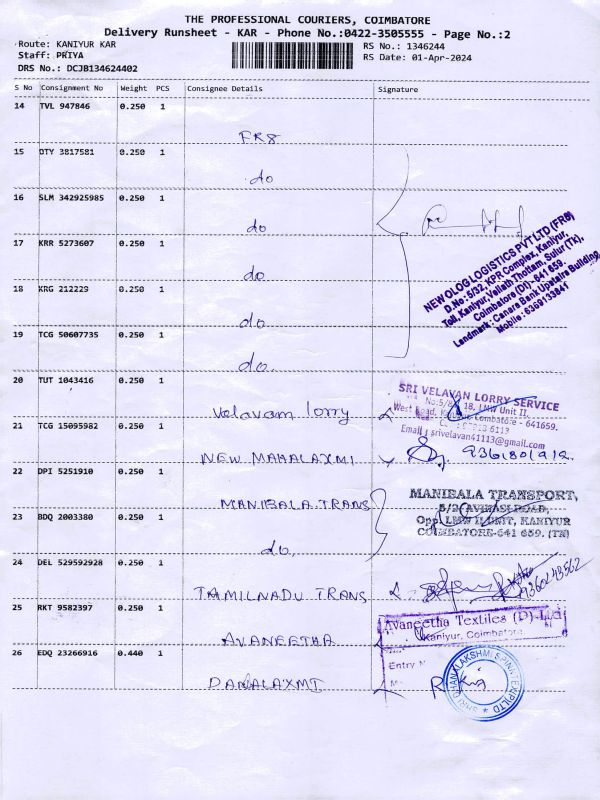 THE PROFESSIONAL COURIERS, COIMBATORE
Delivery Runsheet - KAR - Phone No.:0422-3505555 - Page No.:2
Route: KANIYUR KAR
RS No.: 1346244
Staff: PRIYA
RS Date: 01-Apr-2024
DRS No.: DCJB134624402
S No Consignment No Weight PCS Consignee Details Signature
14 TVL 947846 0.250 1
FR8
15 OTY 3817581 0.250 1
do
16 SLM 342925985 0.250 1
do
17 KRR 5273607 0.250 1
do
18 KRG 212229 0.250 1
do
19 TCG 50607735 0.250 1
do.
NEWOLOG LOGISTICS PVT LTD (FR8)
D.No: 5/32, KPR Complex, Kaniyur,
Toll, Kaniyur, Vellath Thottam, Sulur (Tk),
Coimbatore (Dt) - 641 659.
Landmark: Canara Bank Upstaire Building
Mobile: 6369133841
20 TUT 1043416 0.250 1
Velavam lorry
SRI VELAVAN LORRY SERVICE
18, LMW Unit II,
West Road, Coimbatore - 641659.
6113
Email: srivelavan41113@gmail.com
21 TCG 15095982 0.250 1
NEW MAHALAXMI
22 DPI 5251910 0.250 1
MANIBALA TRANS
23 BDQ 2003380 0.250 1
do.
MANIBALA TRANSPORT,
5/2 AVINASI ROAD,
Opp. LMW II UNIT, KANIYUR
COIMBATORE-641 659. (TN)
24 DEL 529592928 0.250 1
TAMILNADU TRANS
9360243562
25 RKT 9582397 0.250 1
AVANEETHA
Avaneetha Textiles (P)-Ltd
Kaniyur, Coimbatore
Entry N
26 EDQ 23266916 0.440 1
DANALAXMI
SHRI DHANALAKSHMI SPINTEX P LTD